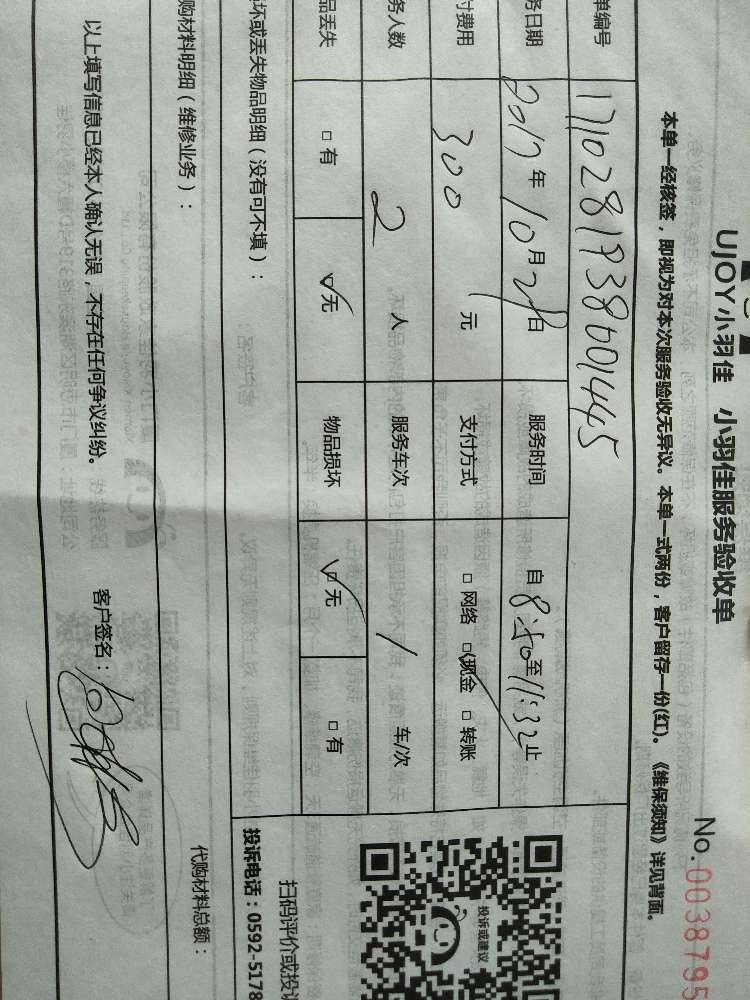 UJOY小羽佳 小羽佳服务验收单
No.0038795
本单一经核签，即视为对本次服务验收无异议。本单一式两份，客户留存一份(红)。《维保须知》详见背面。
单编号 1710281938001445
务日期 2017年10月29日 服务时间 自8:50至11:32止
付费用 300元 支付方式 □ 网络 □ 现金 □ 转账
务人数 2人 服务车次 / 车/次
品丢失 □ 有 □ 无 物品损坏 □ 无 □ 有
坏或丢失物品明细（没有可不填）：
投诉或建议
扫码评价或投诉
投诉电话：0592-5178
购材料明细（维修业务）：
代购材料总额：
以上填写信息已经本人确认无误，不存在任何争议纠纷。 客户签名：